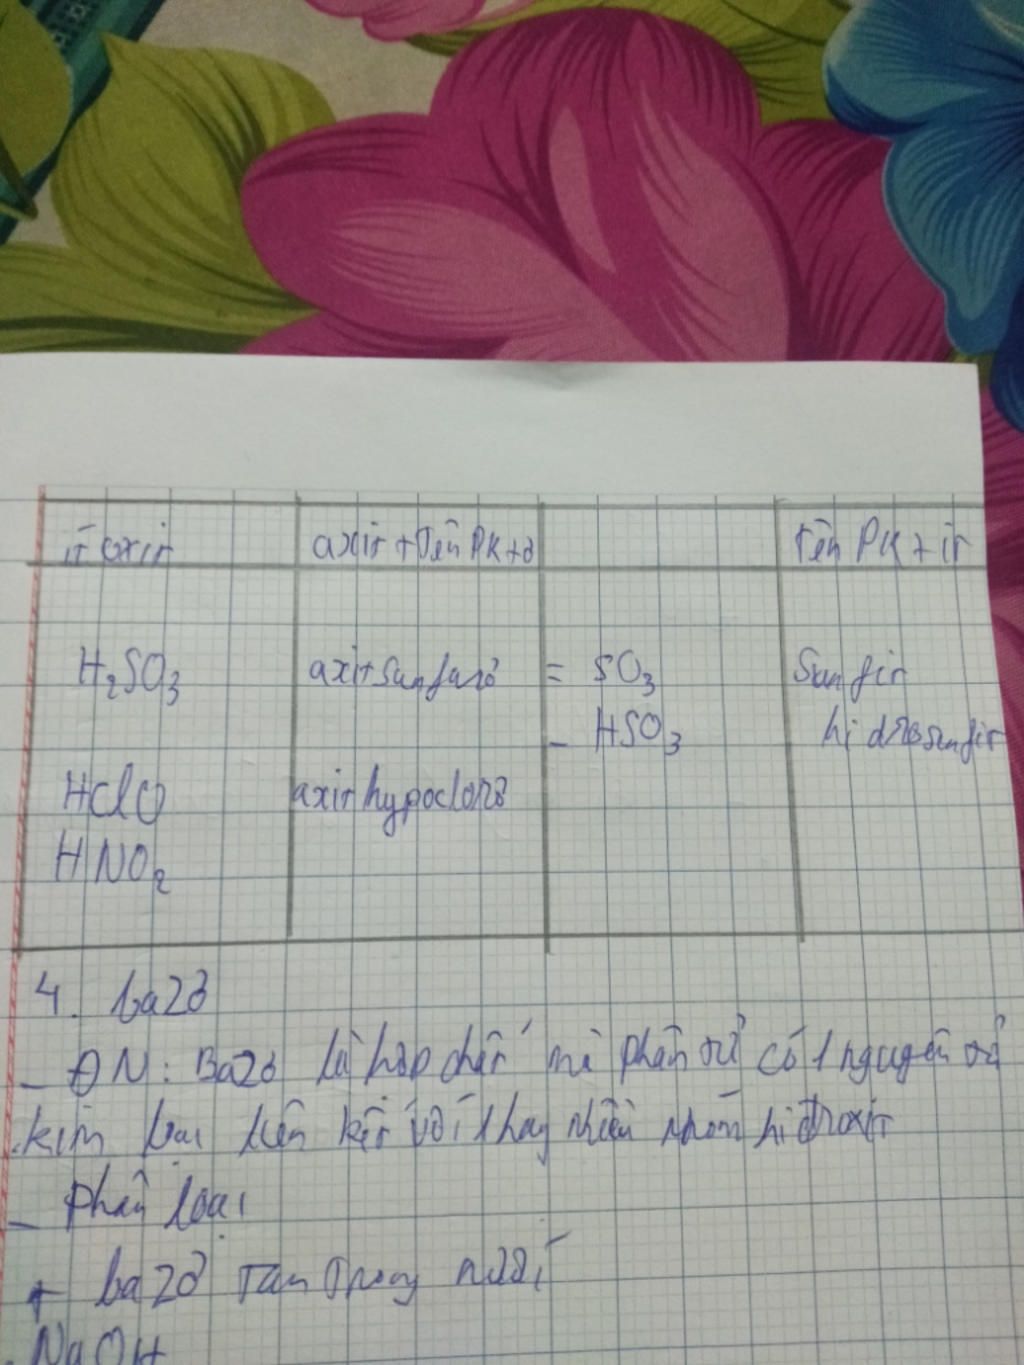 ít oxit axit + Tên PK + ơ tên PK + it
H₂SO₃ axit sunfurơ = SO₃ Sunfit
- HSO₃ hidrosunfit
HClO axit hypoclorơ
HNO₂
4. bazơ
- ĐN: Bazơ là hợp chất mà phân tử có 1 nguyên tử
kim loại liên kết với 1 hay nhiều nhóm hiđroxit
- phân loại
+ bazơ tan trong nước
NaOH